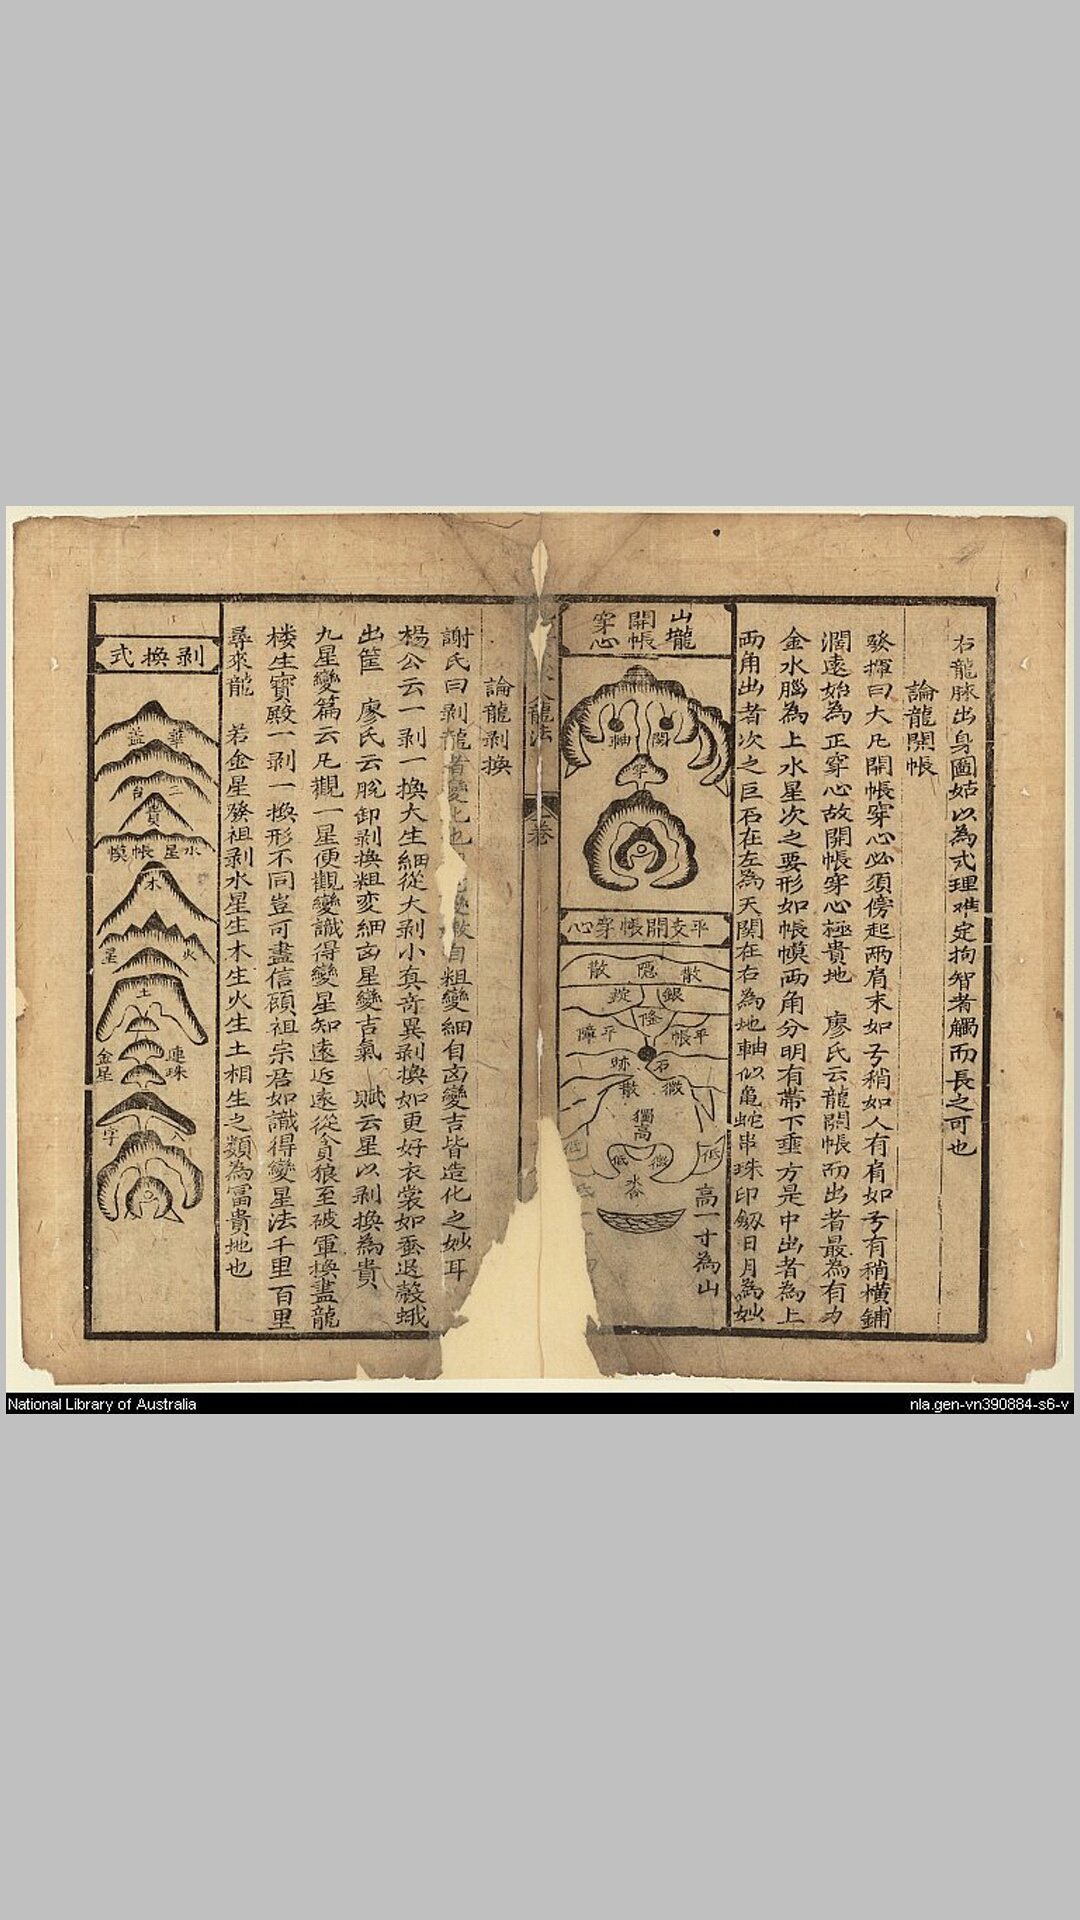 右龍脉出身圖姑以為式理難定拘智者觸而長之可也
論龍開帳
發揮曰大凡開帳穿心必須傍起兩肩末如亏稍如人有肩如亏有稍橫鋪
濶遠始為正穿心故開帳穿心極貴地 廖氏云龍開帳而出者最為有力
金水腦為上水星次之要形如帳幙両角分明有帶下垂方是中出者為上
両角出者次之巨石在左為天関在右為地軸似亀蛇串珠印劔日月為妙
山壠
開帳
穿心
関
軸
穿
平支開帳穿心
散 隠 散
銀 錠
隆
平帳
平障
石
跡
微
散
獨高
低
低
微
低
高一寸為山
龍法
卷
論龍剥換
謝氏曰剥龍者變化也自粗變細自凶變吉皆造化之妙耳
楊公云一剥一換大生細從大剥小真竒異剥換如更好衣裳如蚕退殼蛾
出筐 廖氏云脫卸剥換粗変細凶星變吉氣 賦云星以剥換為貴
九星變篇云凡觀一星便觀變識得變星知遠近遠從貪狼至破軍換盡龍
楼生寳殿一剥一換形不同豈可盡信頋祖宗若如識得變星法千里百里
尋來龍 若金星發祖剥水星生木生火生土相生之類為冨貴地也
剥換式
華盖
三台
貴
水星帳幙
木
火星
土
連珠
金星
八字